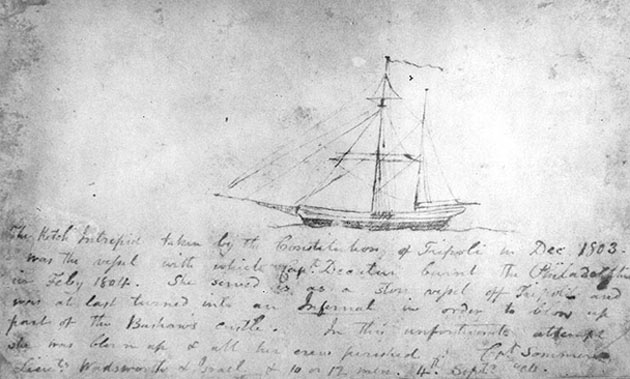 The Ketch Intrepid taken by the Constitution, off Tripoli in Dec 1803.
was the vessel with which Capt. Decatur burnt the Philadelphia
in Feby 1804. She served as a store vessel off Tripoli and
was at last turned into an Infernal in order to blow up
part of the Bashaw's castle. In this unfortunate attempt
she was blown up & all her crew perished Capt Sommers
Lieuts Wadsworth & Israel & 10 or 12 men. 4th Septr